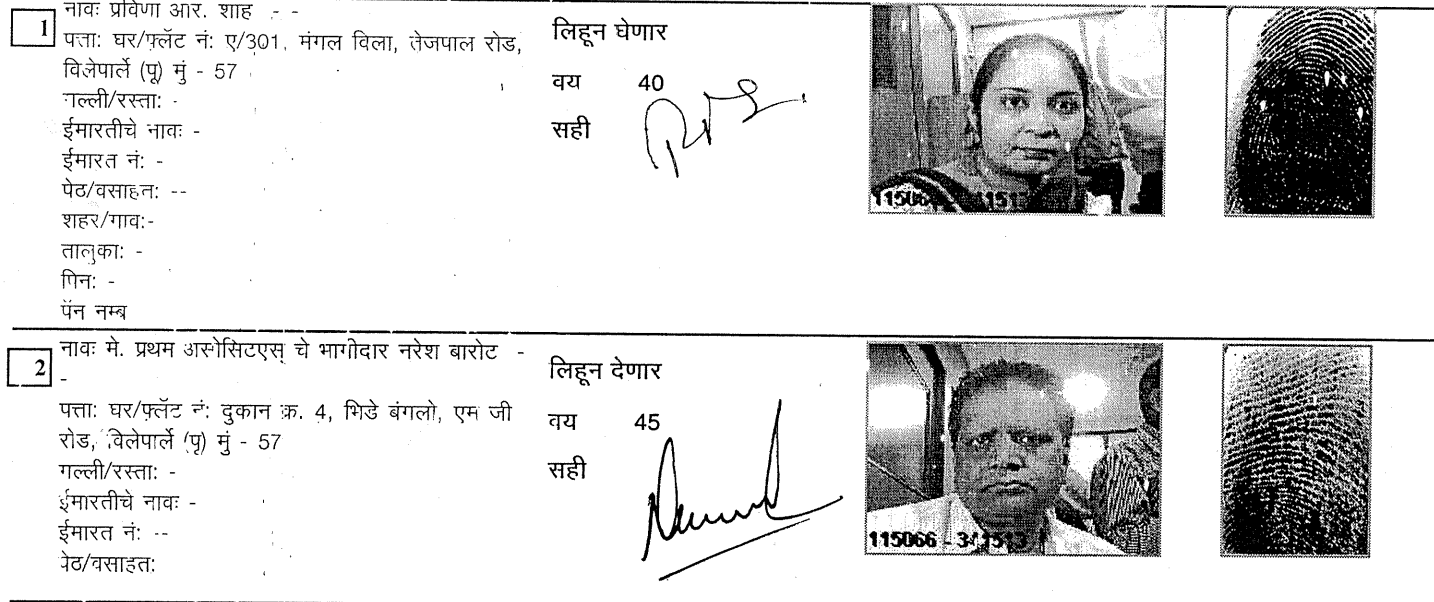 1
नावः प्रविणा आर. शाह - -
पत्ता: घर/फ्लॅट नं: ए/301, मंगल विला, तेजपाल रोड,
विलेपार्ले (पू) मुं - 57
गल्ली/रस्ता: -
ईमारतीचे नावः -
ईमारत नं: -
पेठ/वसाहत: --
शहर/गाव:-
तालुका: -
पिन: -
पॅन नम्ब
लिहून घेणार
वय 40
सही
2
नावः मे. प्रथम असोसिटएस् चे भागीदार नरेश बारोट -
-
पत्ता: घर/फ्लॅट नं: दुकान क्र. 4, भिडे बंगलो, एम जी
रोड, विलेपार्ले (पू) मुं - 57
गल्ली/रस्ता: -
ईमारतीचे नावः -
ईमारत नं: --
पेठ/वसाहत:
लिहून देणार
वय 45
सही
115066 -